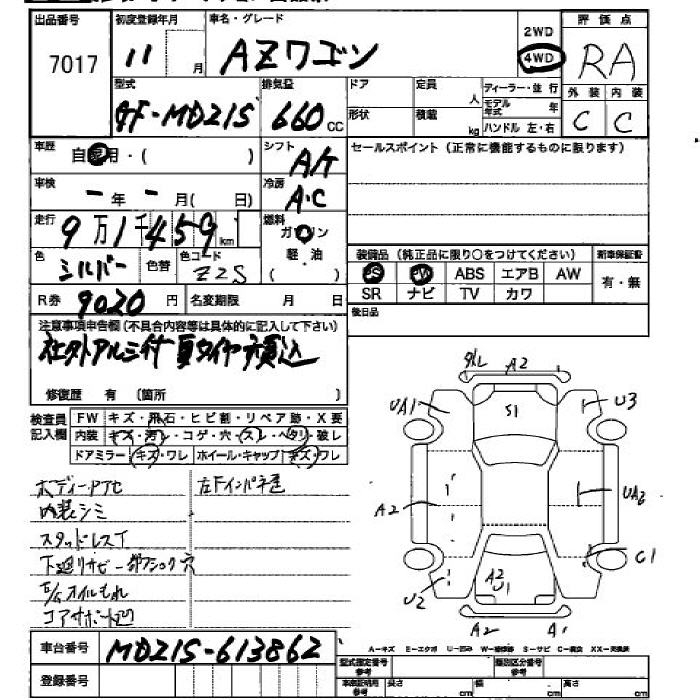 出品番号 初度登録年月 車名・グレード 2WD 評価点
7017 11 月 AZワゴン 4WD RA
型式 排気量 ドア 定員 人 ディーラー・並行 外装 内装
GF-MD21S 660 CC 形状 積載 kg モデル年式 年 C C
ハンドル 左・右
車歴 自家用・( ) シフト A/t セールスポイント(正常に機能するものに限ります)
車検 ー年ー月( 日) 冷房 A・C
走行 9万1千459km 燃料 ガソリン
色 シルバー 色替 色コード Z2S 軽・油 ( )
装備品(純正品に限り○をつけてください) 新車保証書
PS PW ABS エアB AW 有・無
SR ナビ TV カワ
R券 9020 円 名変期限 月 日 後日品
注意事項申告欄(不具合内容等は具体的に記入して下さい)
社外アルミ付 夏タイヤ積込
修復歴 有 〔箇所 〕
検査員記入欄 FW キズ・飛石・ヒビ割・リペア跡・X要
内装 キズ・汚レ・コゲ・穴・スレ・ヘタリ・破レ
ドアミラー キズ・ワレ ホイール・キャップ キズ・ワレ
ボディーアセ 左Fインパネ歪
内装シミ
スタッドレスT
下廻リサビー部フロック穴
E/gオイルもれ
コアサポート凹
ガレ A2
UA1 S1 U3
A2 UA3
A2 U1 C1
U2
A2 A1
車台番号 MD21S-613862
登録番号
A-キズ E-エクボ U-凹み W-補修跡 S-サビ C-腐食 XX-交換済
型式指定番号 参考 類別区分番号 参考
車庫証明用 参考 長さ cm 幅 cm 高さ cm